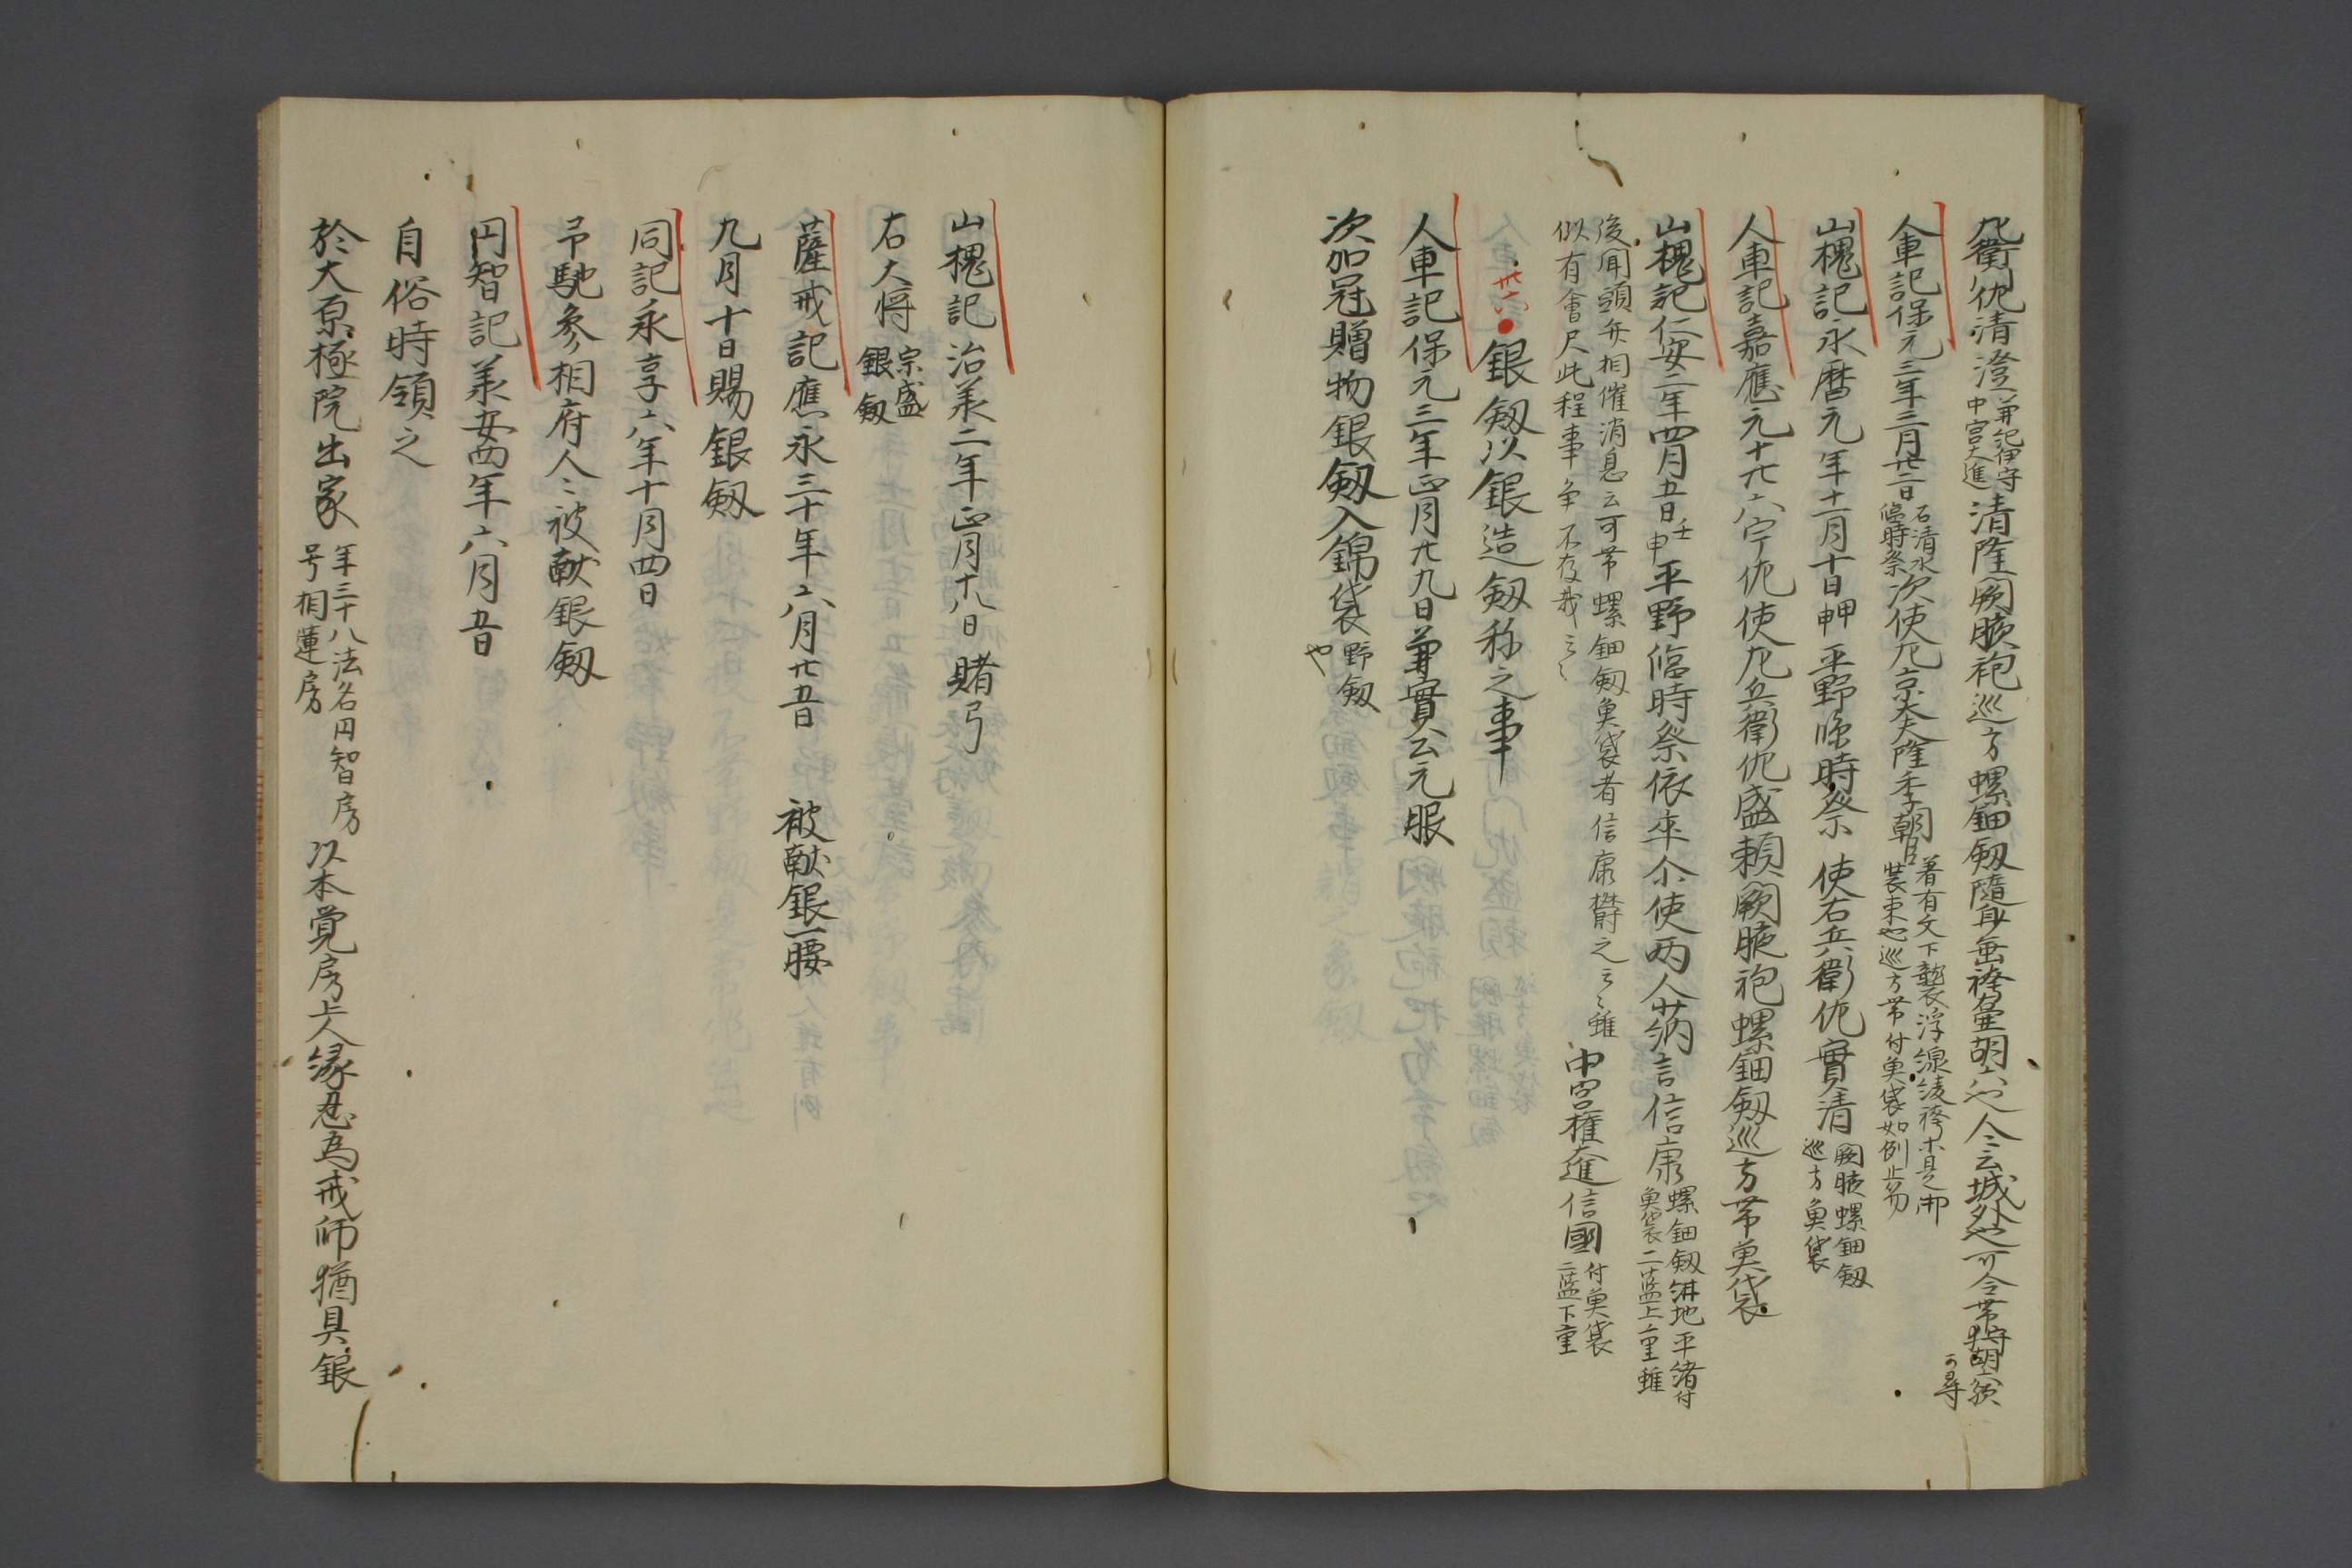 左衛門佐清澄兼紀伊守中宮大進清隆闕腋袍巡方螺鈿劔随身垂袴壺胡六也人々云城外也可令帯狩胡六歟可尋
人車記保元三年三月廿二日石清水臨時祭次使左京大夫隆季朝臣著有文下襲浮線綾袴不具之用装束也巡方帯付魚袋如例止
山槐記永暦元年十二月十日甲申平野臨時祭使右兵衛佐實清闕腋螺鈿劔巡方魚袋
人車記嘉應元十廿六宇佐使左兵衛佐盛頼闕腋袍螺鈿劔巡方帯魚袋
山槐記仁安二年四月五日壬申平野臨時祭依卒尒使两人少納言信康螺鈿劔蒔地平緒付魚袋二藍上重雖
後聞頭弁相催消息云可帯螺鈿劔魚袋者信康欝之云々雖
似有會尺此程事争不存哉云々
中宮権大進信國付魚袋二藍下重
廿六
銀劔以銀造劔称之事
人車記保元三年正月廿九日兼實公元服
次加冠贈物銀劔入錦袋野劔也
山槐記治羕二年正月十八日賭弓
右大将宗盛銀劔
薩戒記應永三十年六月廿五日 被献銀一腰
九月十日賜銀劔
同記永享六年十月四日
予馳参相府人々被献銀劔
円智記羕安四年六月五日
自俗時領之
於大原極院出家年三十八法名円智房号相蓮房以本覚房上人縁忍為戒師猶具銀